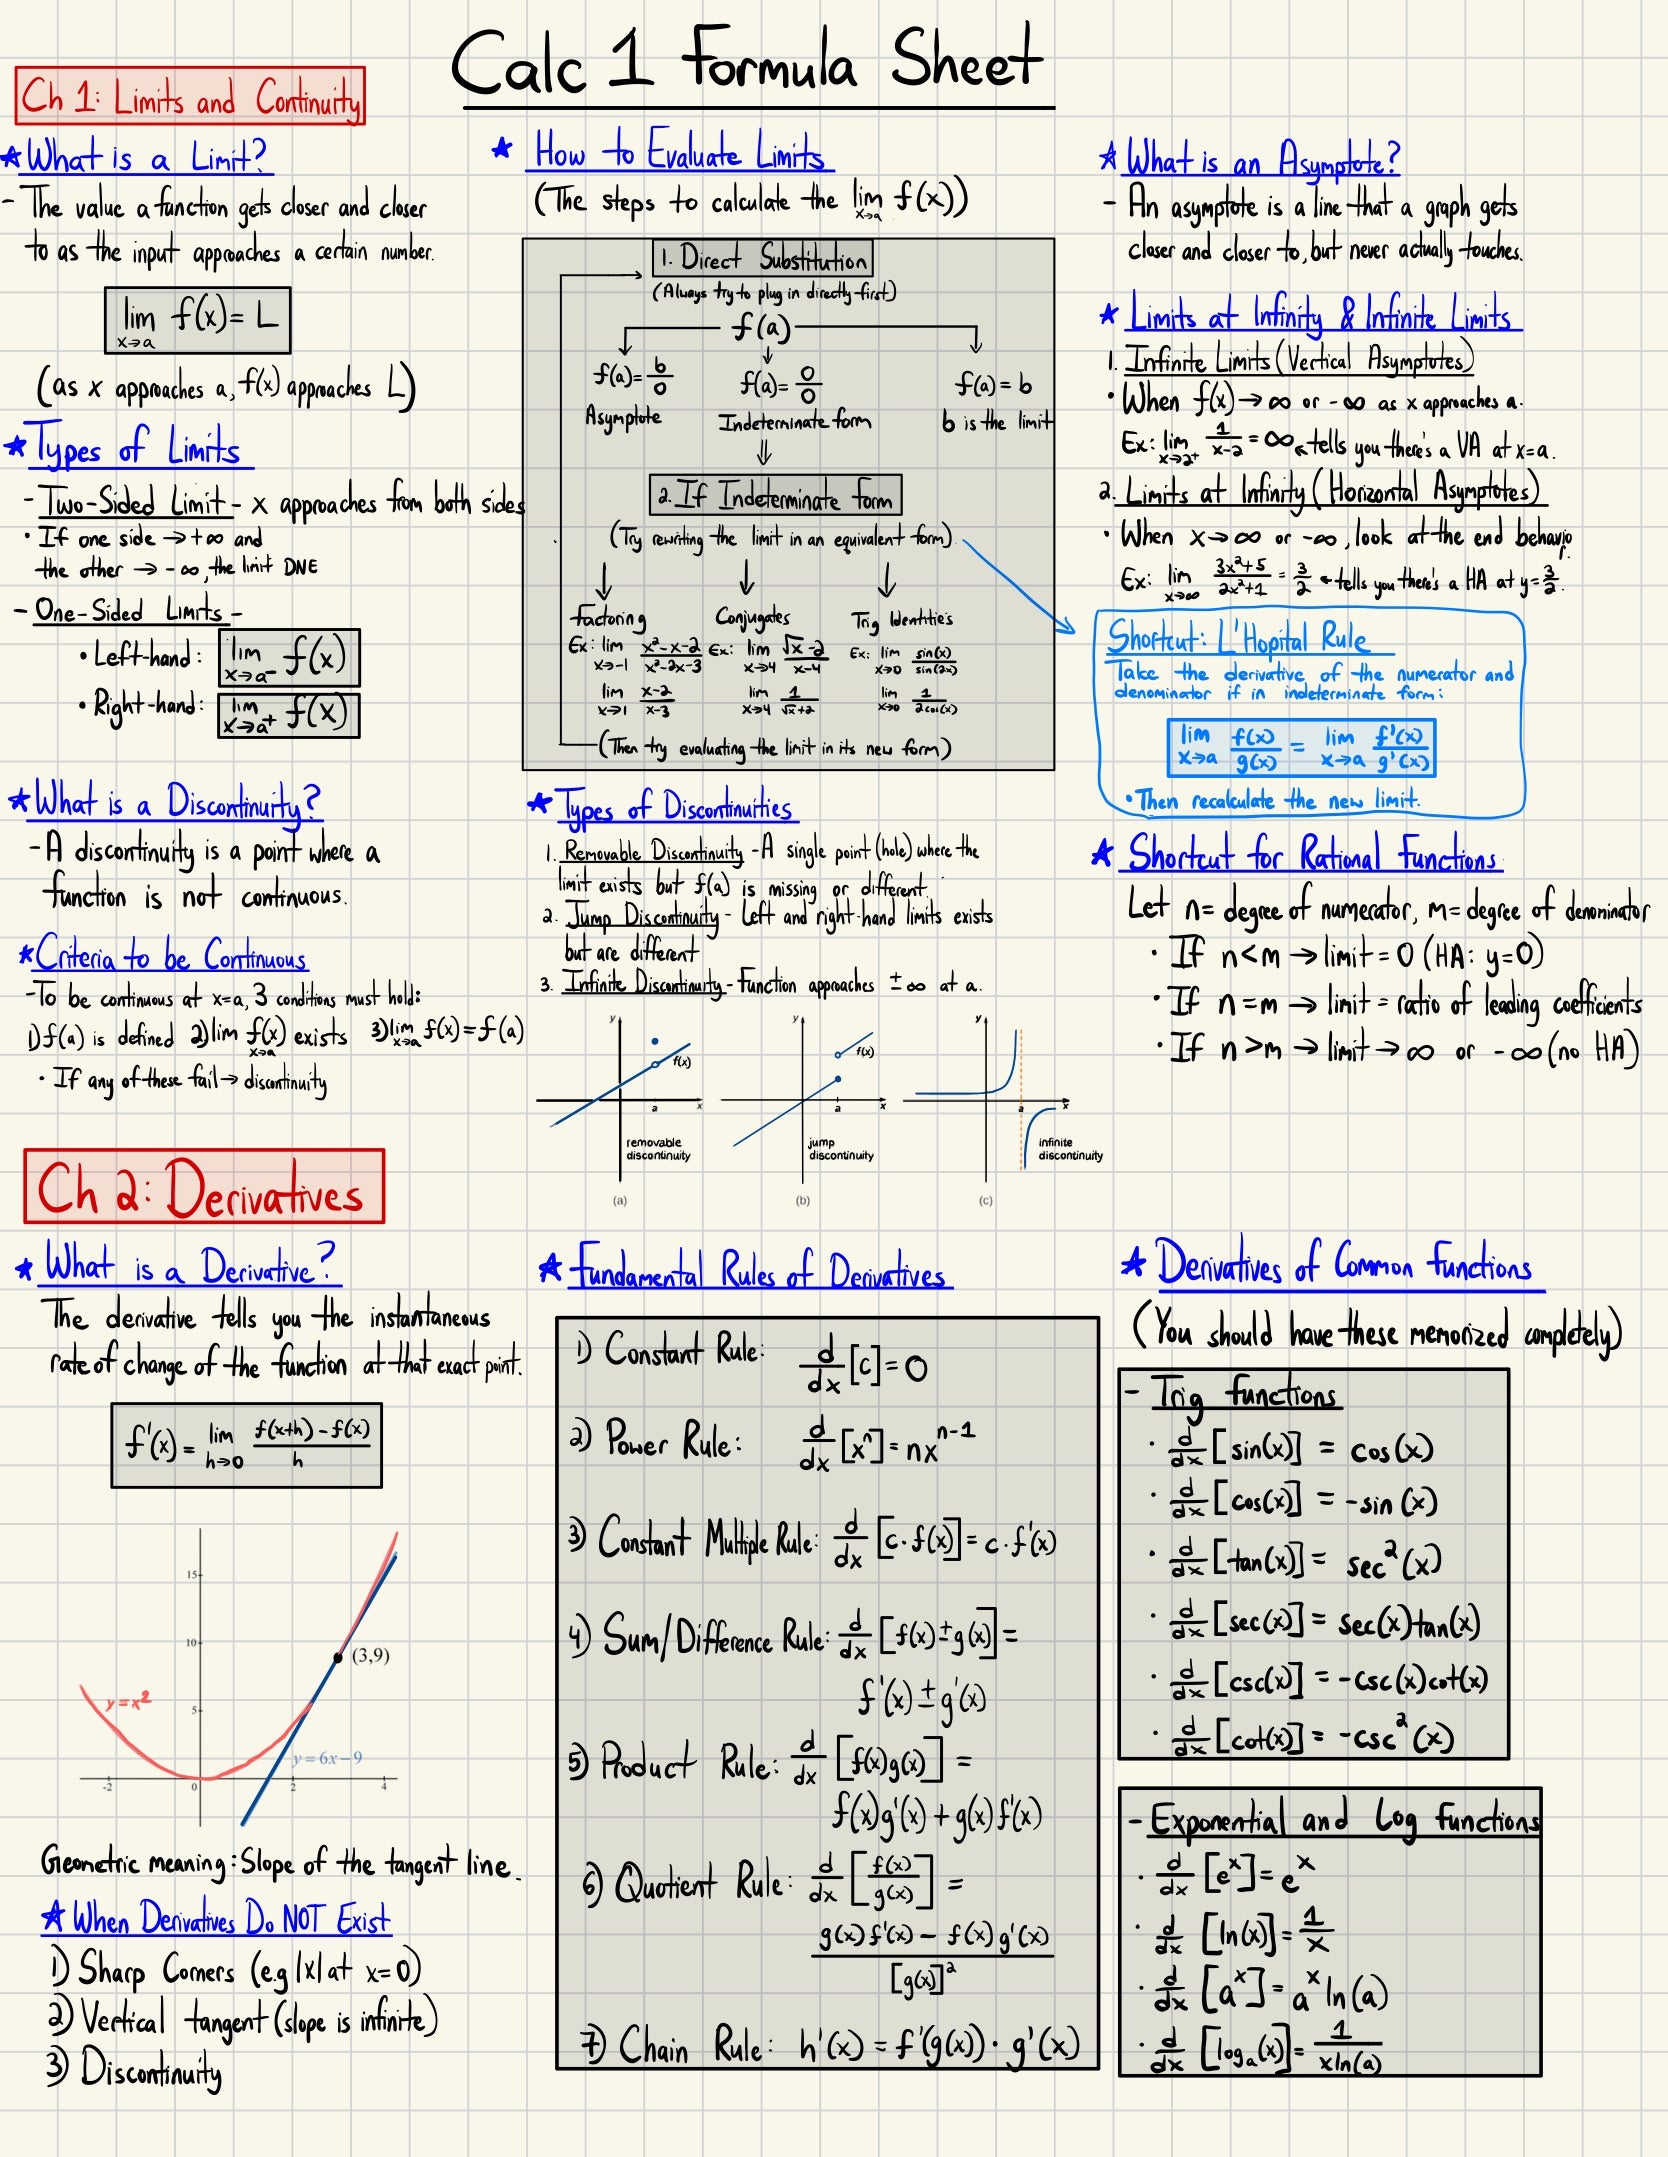 Calc 1 Formula Sheet
Ch 1: Limits and Continuity
★ What is a Limit?
- The value a function gets closer and closer
to as the input approaches a certain number.
lim f(x) = L
x→a
(as x approaches a, f(x) approaches L)
★ Types of Limits
- Two-Sided Limit - x approaches from both sides
• If one side → +∞ and
the other → -∞, the limit DNE
- One-Sided Limits -
• Left-hand: lim f(x)
x→a⁻
• Right-hand: lim f(x)
x→a⁺
★ What is a Discontinuity?
- A discontinuity is a point where a
function is not continuous.
★ Criteria to be Continuous
- To be continuous at x=a, 3 conditions must hold:
1) f(a) is defined 2) lim f(x) exists 3) lim f(x) = f(a)
x→a x→a
• If any of these fail → discontinuity
★ How to Evaluate Limits
(The steps to calculate the lim f(x))
x→a
1. Direct Substitution
(Always try to plug in directly first)
f(a)
f(a) = b/0 f(a) = 0/0 f(a) = b
Asymptote Indeterminate form b is the limit
2. If Indeterminate form
(Try rewriting the limit in an equivalent form)
Factoring Conjugates Trig Identities
Ex: lim x→-1 (x²-x-2)/(x²-2x-3) Ex: lim x→4 (√x-2)/(x-4) Ex: lim x→0 sin(x)/sin(2x)
lim x→1 (x-2)/(x-3) lim x→4 1/(√x+2) lim x→0 1/(2cos(x))
(Then try evaluating the limit in its new form)
★ Types of Discontinuities
1. Removable Discontinuity - A single point (hole) where the
limit exists but f(a) is missing or different
2. Jump Discontinuity - Left and right-hand limits exists
but are different
3. Infinite Discontinuity - Function approaches ±∞ at a.
y y y
f(x) f(x)
a x a x a x
removable jump infinite
discontinuity discontinuity discontinuity
(a) (b) (c)
★ What is an Asymptote?
- An asymptote is a line that a graph gets
closer and closer to, but never actually touches.
★ Limits at Infinity & Infinite Limits
1. Infinite Limits (Vertical Asymptotes)
• When f(x) → ∞ or -∞ as x approaches a.
Ex: lim x→2⁺ 1/(x-2) = ∞ ← tells you there's a VA at x=a.
2. Limits at Infinity (Horizontal Asymptotes)
• When x → ∞ or -∞, look at the end behavior.
Ex: lim x→∞ (3x²+5)/(2x²+1) = 3/2 ← tells you there's a HA at y=3/2.
Shortcut: L'Hopital Rule
Take the derivative of the numerator and
denominator if in indeterminate form:
lim x→a f(x)/g(x) = lim x→a f'(x)/g'(x)
• Then recalculate the new limit.
★ Shortcut for Rational Functions
Let n= degree of numerator, m= degree of denominator
• If n<m → limit = 0 (HA: y=0)
• If n=m → limit = ratio of leading coefficients
• If n>m → limit → ∞ or -∞ (no HA)
Ch 2: Derivatives
★ What is a Derivative?
The derivative tells you the instantaneous
rate of change of the function at that exact point.
f'(x) = lim h→0 (f(x+h) - f(x))/h
15
10
(3,9)
y=x²
5
y = 6x-9
-2 0 2 4
Geometric meaning: Slope of the tangent line.
★ When Derivatives Do NOT Exist
1) Sharp Corners (e.g |x| at x=0)
2) Vertical tangent (slope is infinite)
3) Discontinuity
★ Fundamental Rules of Derivatives
1) Constant Rule: d/dx [c] = 0
2) Power Rule: d/dx [xⁿ] = nxⁿ⁻¹
3) Constant Multiple Rule: d/dx [c·f(x)] = c·f'(x)
4) Sum/Difference Rule: d/dx [f(x)±g(x)] =
f'(x) ± g'(x)
5) Product Rule: d/dx [f(x)g(x)] =
f(x)g'(x) + g(x)f'(x)
6) Quotient Rule: d/dx [f(x)/g(x)] =
(g(x)f'(x) - f(x)g'(x))/[g(x)]²
7) Chain Rule: h'(x) = f'(g(x))·g'(x)
★ Derivatives of Common Functions
(You should have these memorized completely)
- Trig Functions
• d/dx [sin(x)] = cos(x)
• d/dx [cos(x)] = -sin(x)
• d/dx [tan(x)] = sec²(x)
• d/dx [sec(x)] = sec(x)tan(x)
• d/dx [csc(x)] = -csc(x)cot(x)
• d/dx [cot(x)] = -csc²(x)
- Exponential and Log Functions
• d/dx [eˣ] = eˣ
• d/dx [ln(x)] = 1/x
• d/dx [aˣ] = aˣ ln(a)
• d/dx [logₐ(x)] = 1/(xln(a))